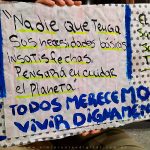 "Nadie que tenga
sus necesidades básicas
insatisfechas
Pensará en cuidar
el Planeta
TODOS MERECEMO
VIVIR DIGNAMEN
EL